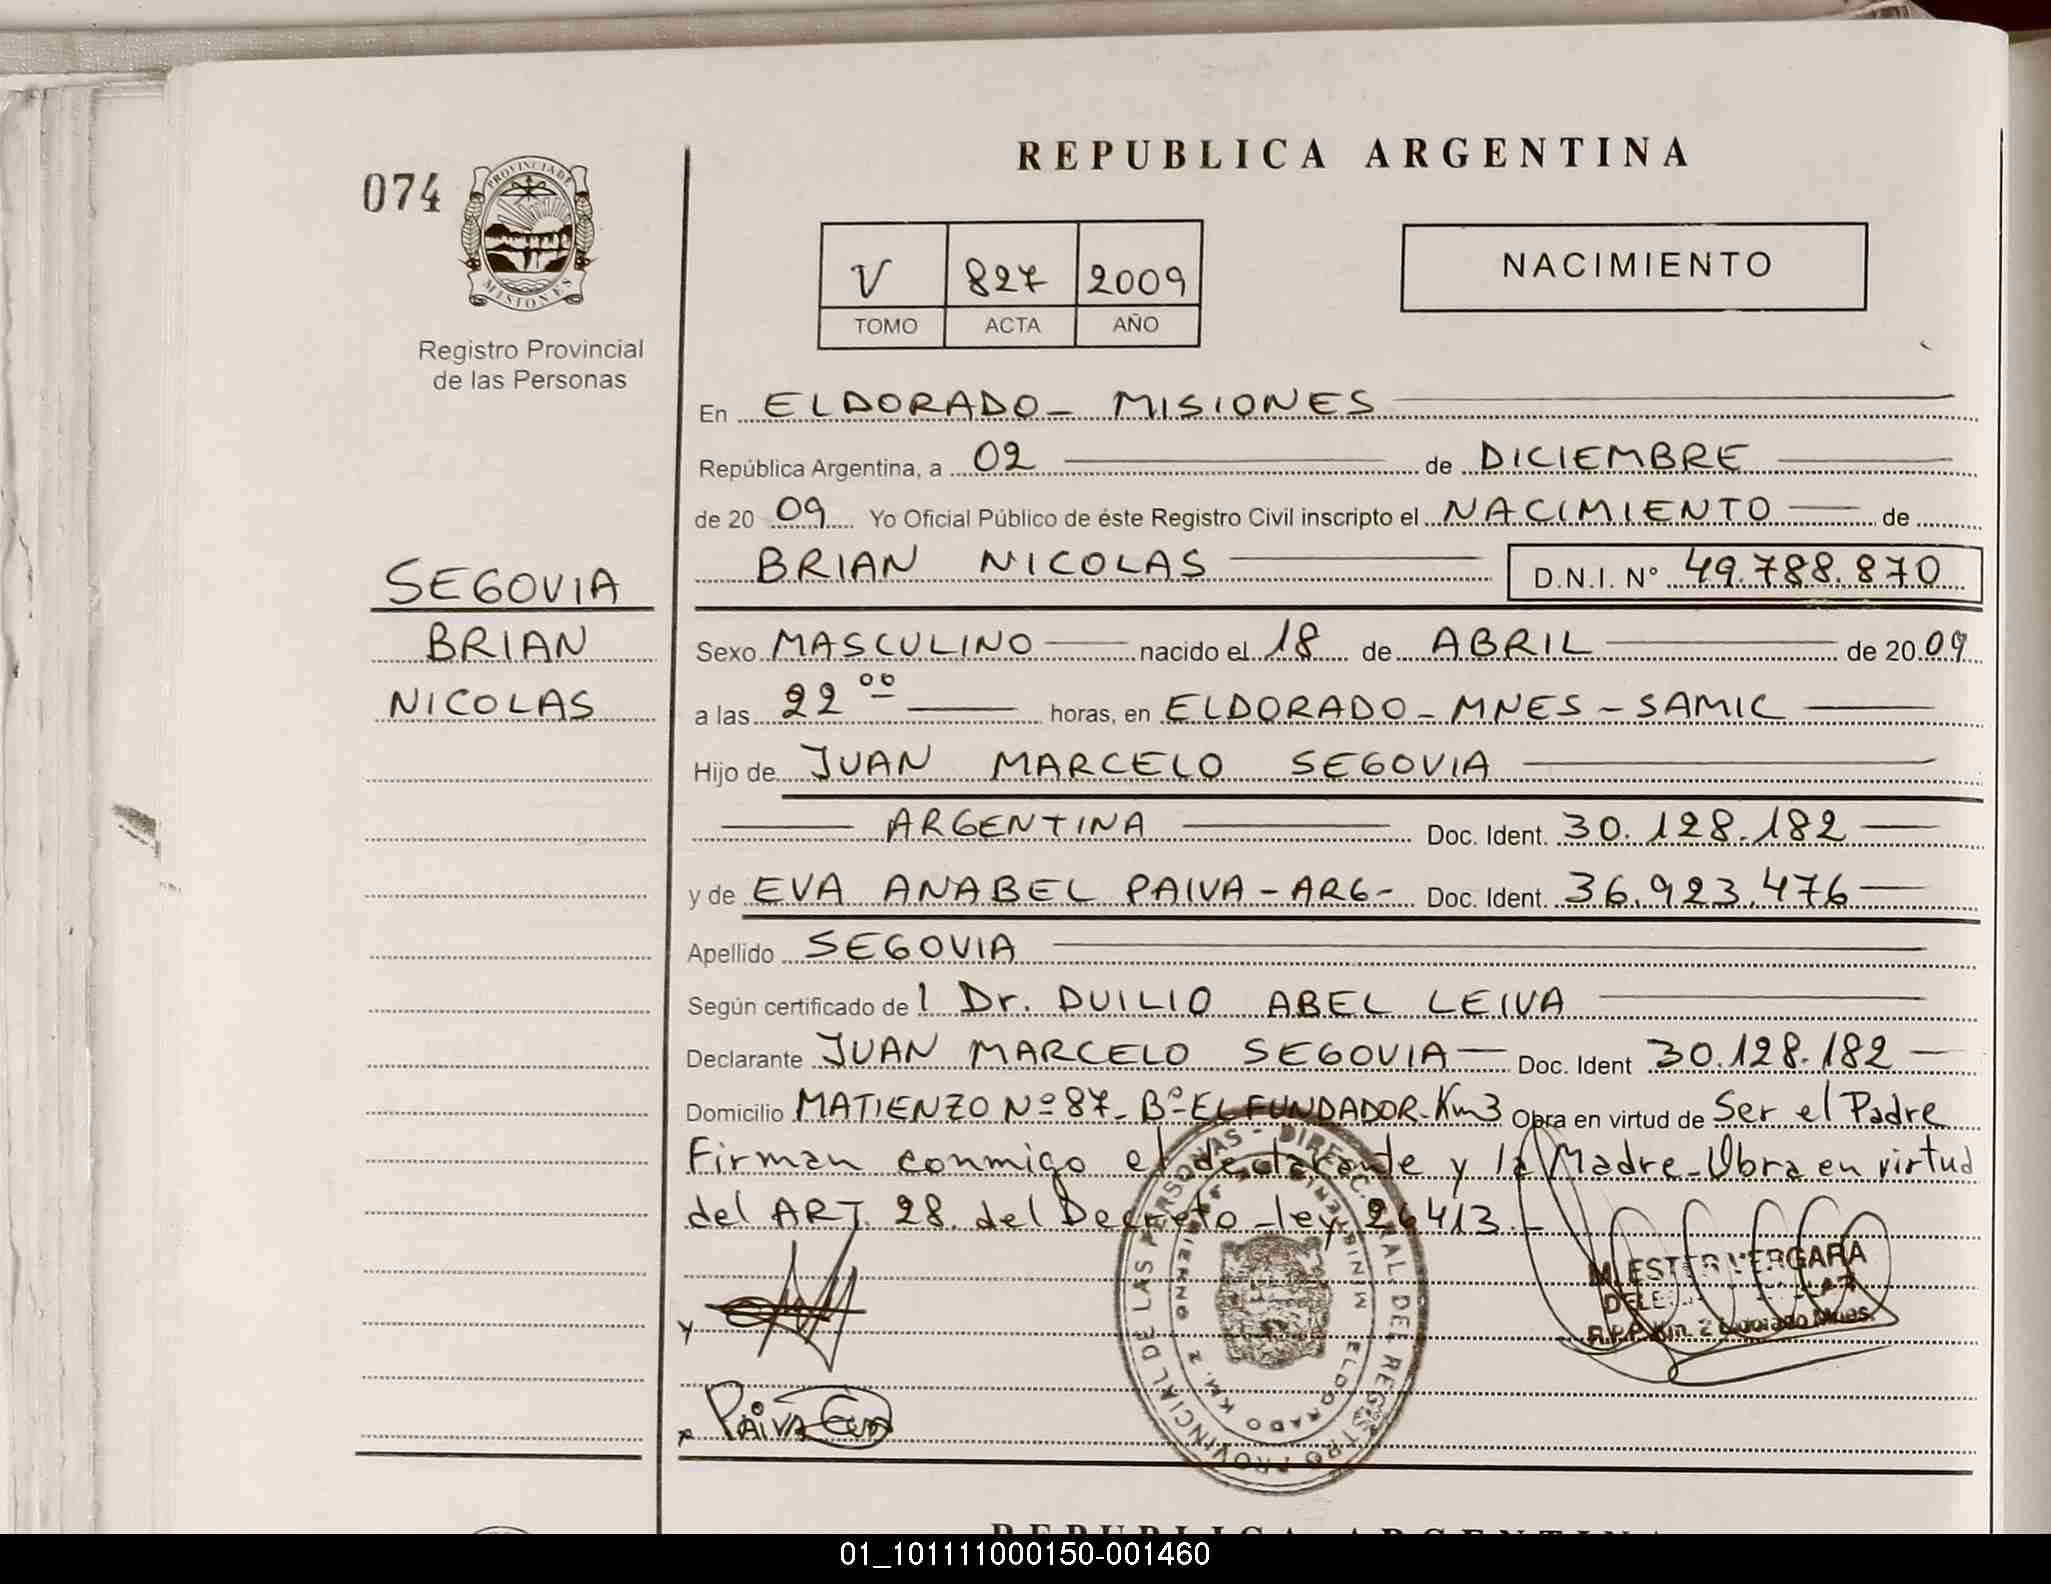 REPUBLICA ARGENTINA
074
PROVINCIA DE
MISIONES
V 827 2009
TOMO ACTA AÑO
NACIMIENTO
Registro Provincial
de las Personas
En ELDORADO - MISIONES
República Argentina, a 02 de DICIEMBRE
de 20 09 Yo Oficial Público de éste Registro Civil inscripto el NACIMIENTO de
BRIAN NICOLAS D.N.I. N° 49.788.870
SEGOVIA
BRIAN
NICOLAS
Sexo MASCULINO nacido el 18 de ABRIL de 20 09
a las 22 00 horas, en ELDORADO - MNES - SAMIC
Hijo de JUAN MARCELO SEGOVIA
ARGENTINA Doc. Ident. 30.128.182
y de EVA ANABEL PAIVA - ARG - Doc. Ident. 36.923.476
Apellido SEGOVIA
Según certificado de l Dr. DUILIO ABEL LEIVA
Declarante JUAN MARCELO SEGOVIA Doc. Ident 30.128.182
Domicilio MATIENZO Nº 87 - Bº - EL FUNDADOR - Km 3 Obra en virtud de Ser el Padre
Firman conmigo el declarante y la Madre - Obra en virtud
del ART. 28. del Decreto - ley. 26413. -
DIREC. GRAL. DEL REGISTRO PROVINCIAL DE LAS PERSONAS -
ELDORADO KM. 2
M. ESTER VERGARA
R.P.P. Km. 2 Eldorado Mnes.
PAIVA Eva
REPUBLICA ARGENTINA
01_101111000150-001460